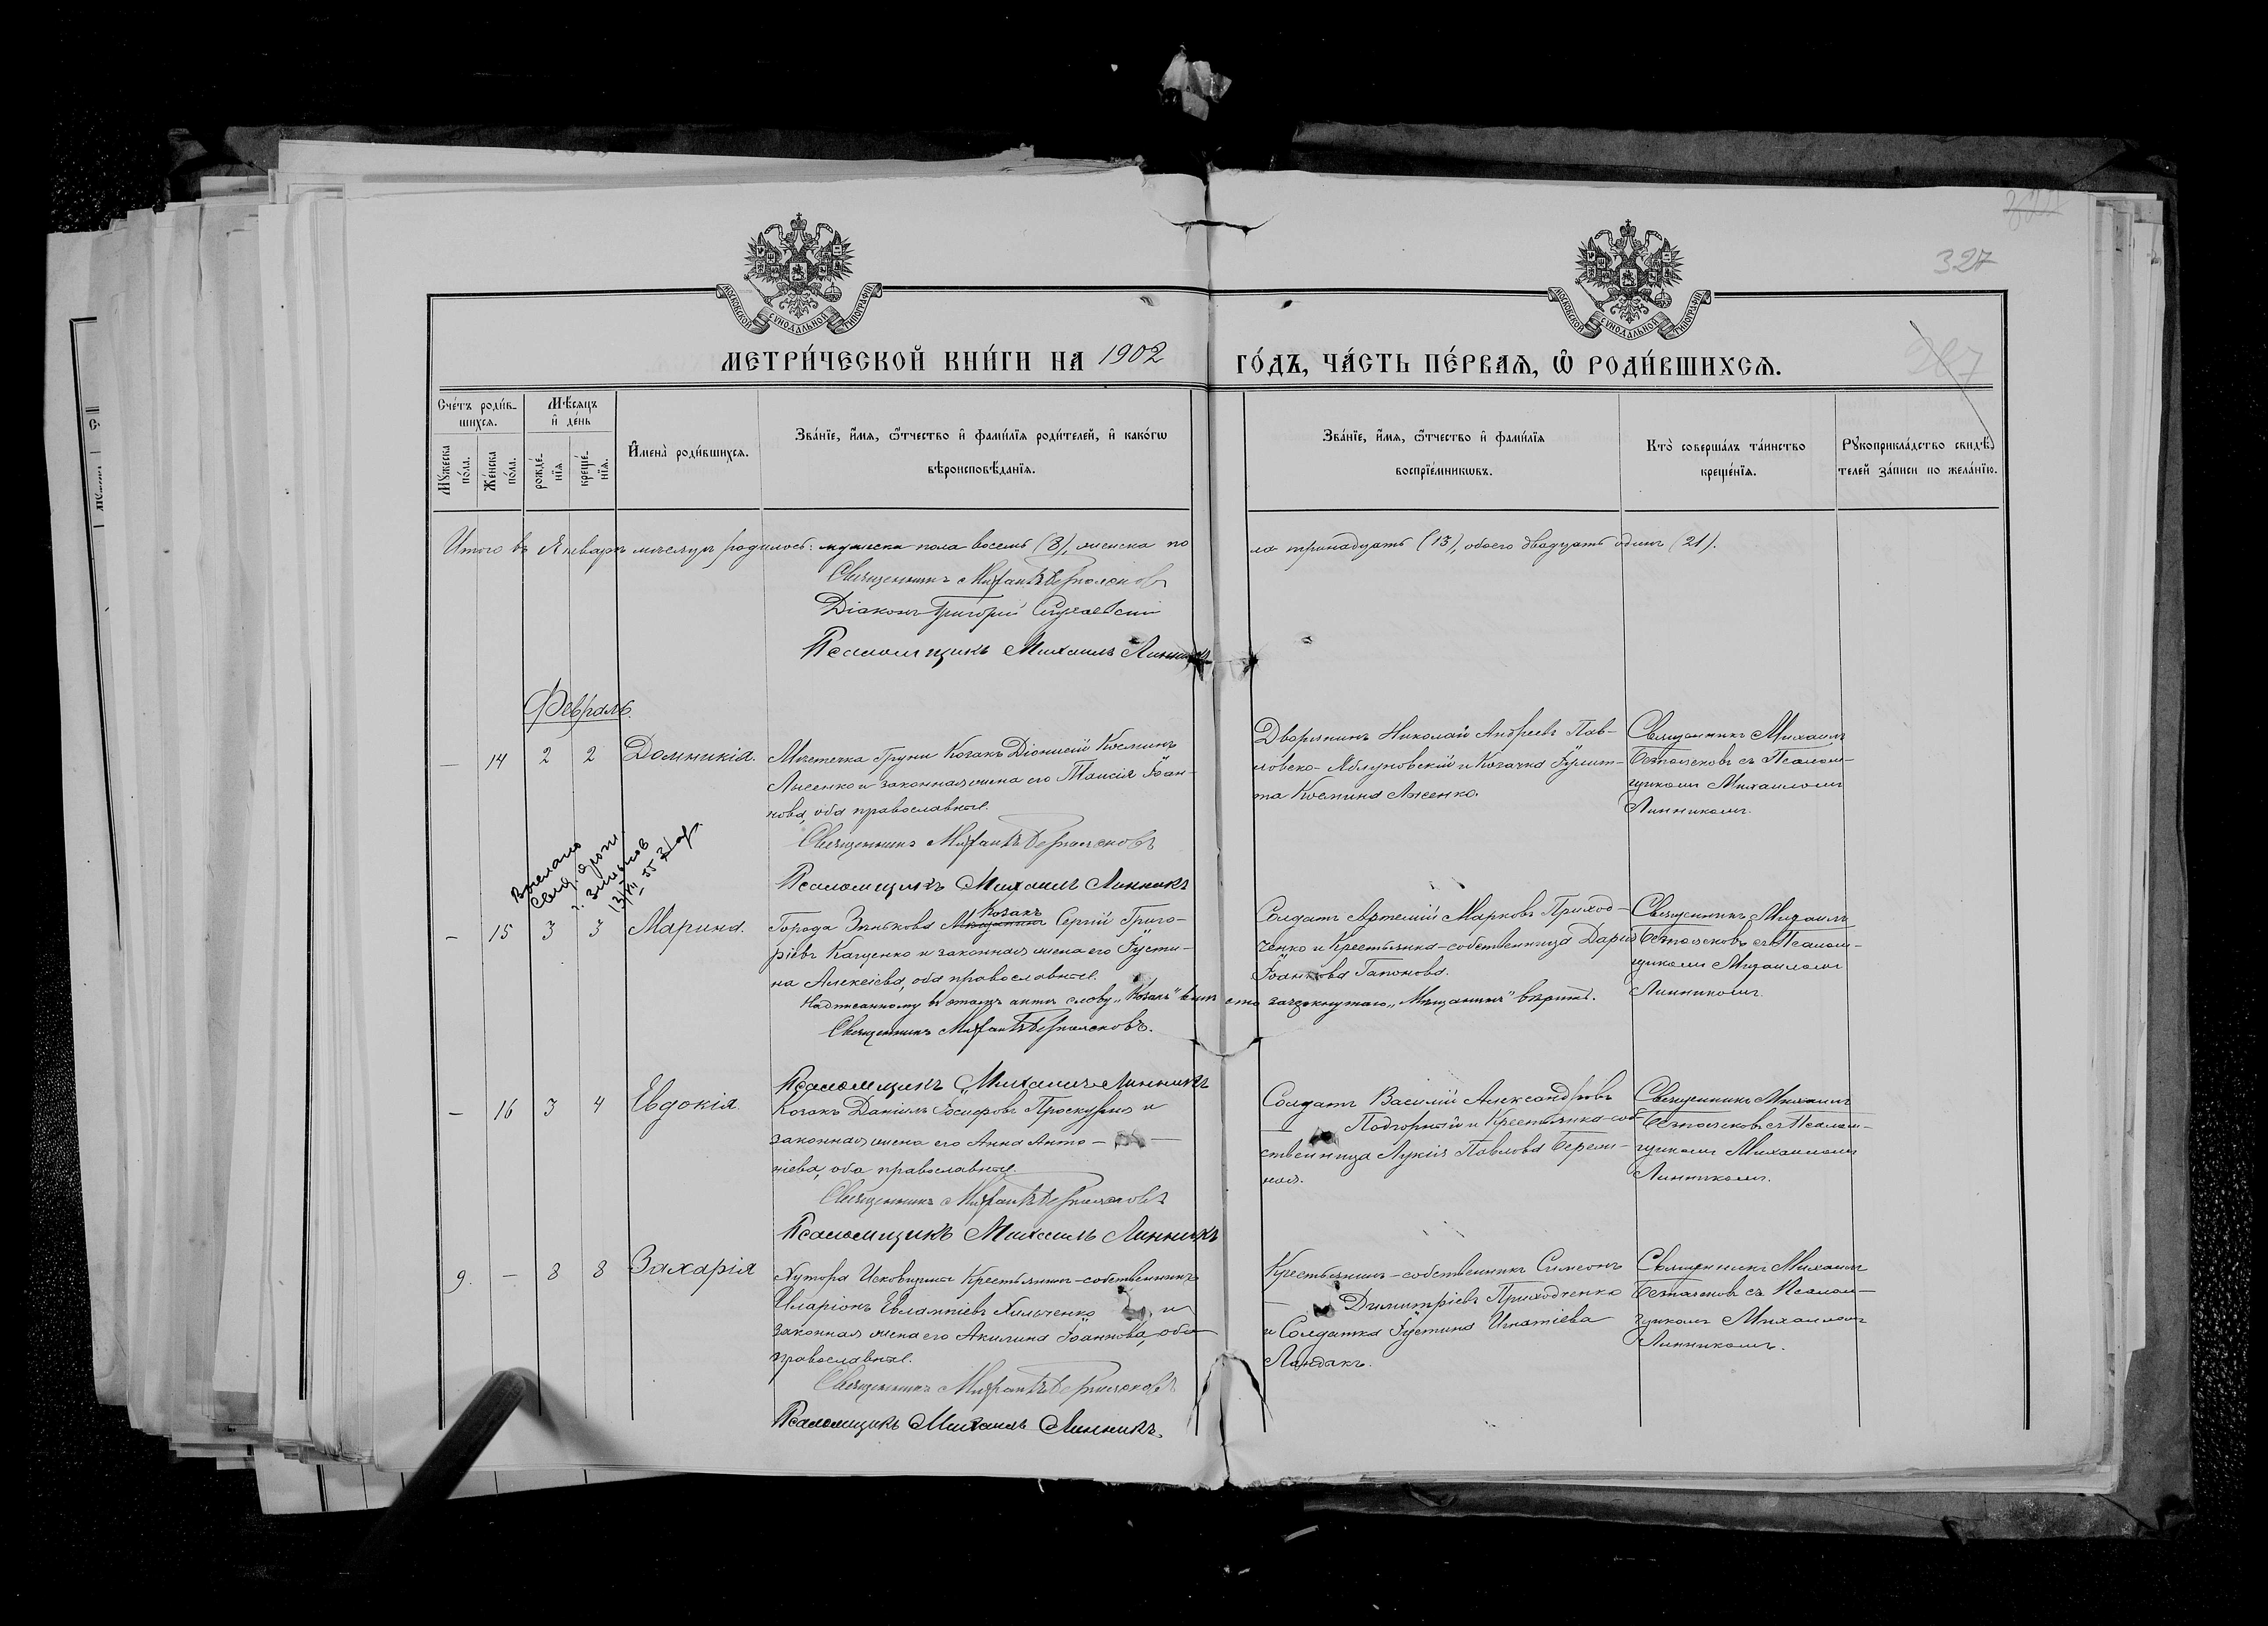 МОСКОВСКОЙ СѴНОДАЛЬНОЙ ТИПОГРАФІИ
МОСКОВСКОЙ СѴНОДАЛЬНОЙ ТИПОГРАФІИ
327
267
МЕТРИ́ЧЕСКОЙ КНИ́ГИ НА 1902 ГО́ДЪ, ЧА́СТЬ ПЕ́РВАѦ, Ѡ҆ РОДИ́ВШИХСѦ.
Сче́тъ роди́в-
шихсѧ.
Мꙋ́жеска по́ла.
Же́нска по́ла.
Мѣ́сѧцъ
и҆ де́нь
рожде́-нїѧ
креще́-нїѧ.
И҆мена̀ роди́вшихсѧ.
Зва́нїе, и҆́мѧ, ѻ҆́тчество и҆ фами́лїѧ роди́телей, и҆ како́гѡ
вѣроисповѣ́данїѧ.
Зва́нїе, и҆́мѧ, ѻ҆́тчество и҆ фами́лїѧ
воспрїе́мникѡвъ.
Кто̀ соверша́лъ та́инство
креще́нїѧ.
Рꙋкоприкла́дство свидѣ́-
телей за́писи по жела́нїю.
Итого въ Январѣ мѣсяцѣ родилось: мужска пола восемь (8), женска по
ла тринадцать (13), обоего двадцать одинъ (21).
Священникъ Михаилъ
Діаконъ Григорій
Псаломщикъ Михаилъ Линникъ
Февраль.
— 14 2 2 Домникія.
Мѣстечка Груни Козакъ Діонисій Косминъ
Лысенко и законная жена его Таисія Іоан-
нова, оба православные.
Священникъ Михаилъ
Псаломщикъ Михаилъ Линникъ
Дворянинъ Николай Андреевъ Пав-
ловско-Яблуновскій и Козачка Іулит-
та Космина Лысенко.
Священникъ Михаилъ
съ Псалом-
щикомъ Михаиломъ
Линникомъ.
Выслано
г. Зиньков
— 15 3 3 Марина.
Козакъ
Города Зѣнькова Мѣщанинъ Сергій Григо-
ріевъ Кащенко и законная жена его Іусти-
на Алексіева, оба православные.
Надписанному въ этомъ актѣ слову „Козакъ" вмѣсто зачеркнутаго „Мѣщанинъ" вѣрить.
Священникъ Михаилъ
Псаломщикъ Михаилъ Линникъ
Солдатъ Артемій Марковъ Приход-
ченко и Крестьянка-собственница Дарія
Іоаннова Гапонова.
Священникъ Михаилъ
съ Псалом-
щикомъ Михаиломъ
Линникомъ.
— 16 3 4 Евдокія.
Козакъ Даніилъ Іосифовъ Проскурня и
законная жена его Анна Анто-
ніева, оба православные.
Священникъ Михаилъ
Псаломщикъ Михаилъ Линникъ
Солдатъ Василій Александровъ
Подгорный и Крестьянка-соб-
ственница Лукія Павлова Береж-
ная.
Священникъ Михаилъ
съ Псалом-
щикомъ Михаиломъ
Линникомъ.
9. — 8 8 Захарія
Хутора Исковщины Крестьянинъ-собственникъ
Иларіонъ Евлампіевъ Хильченко и
законная жена его Акилина Іоаннова, оба
православные.
Священникъ Михаилъ
Псаломщикъ Михаилъ Линникъ.
Крестьянинъ-собственникъ Симеонъ
Димитріевъ Приходченко
и Солдатка Іустина Игнатіева
Ландакъ.
Священникъ Михаилъ
съ Псалом-
щикомъ Михаиломъ
Линникомъ.